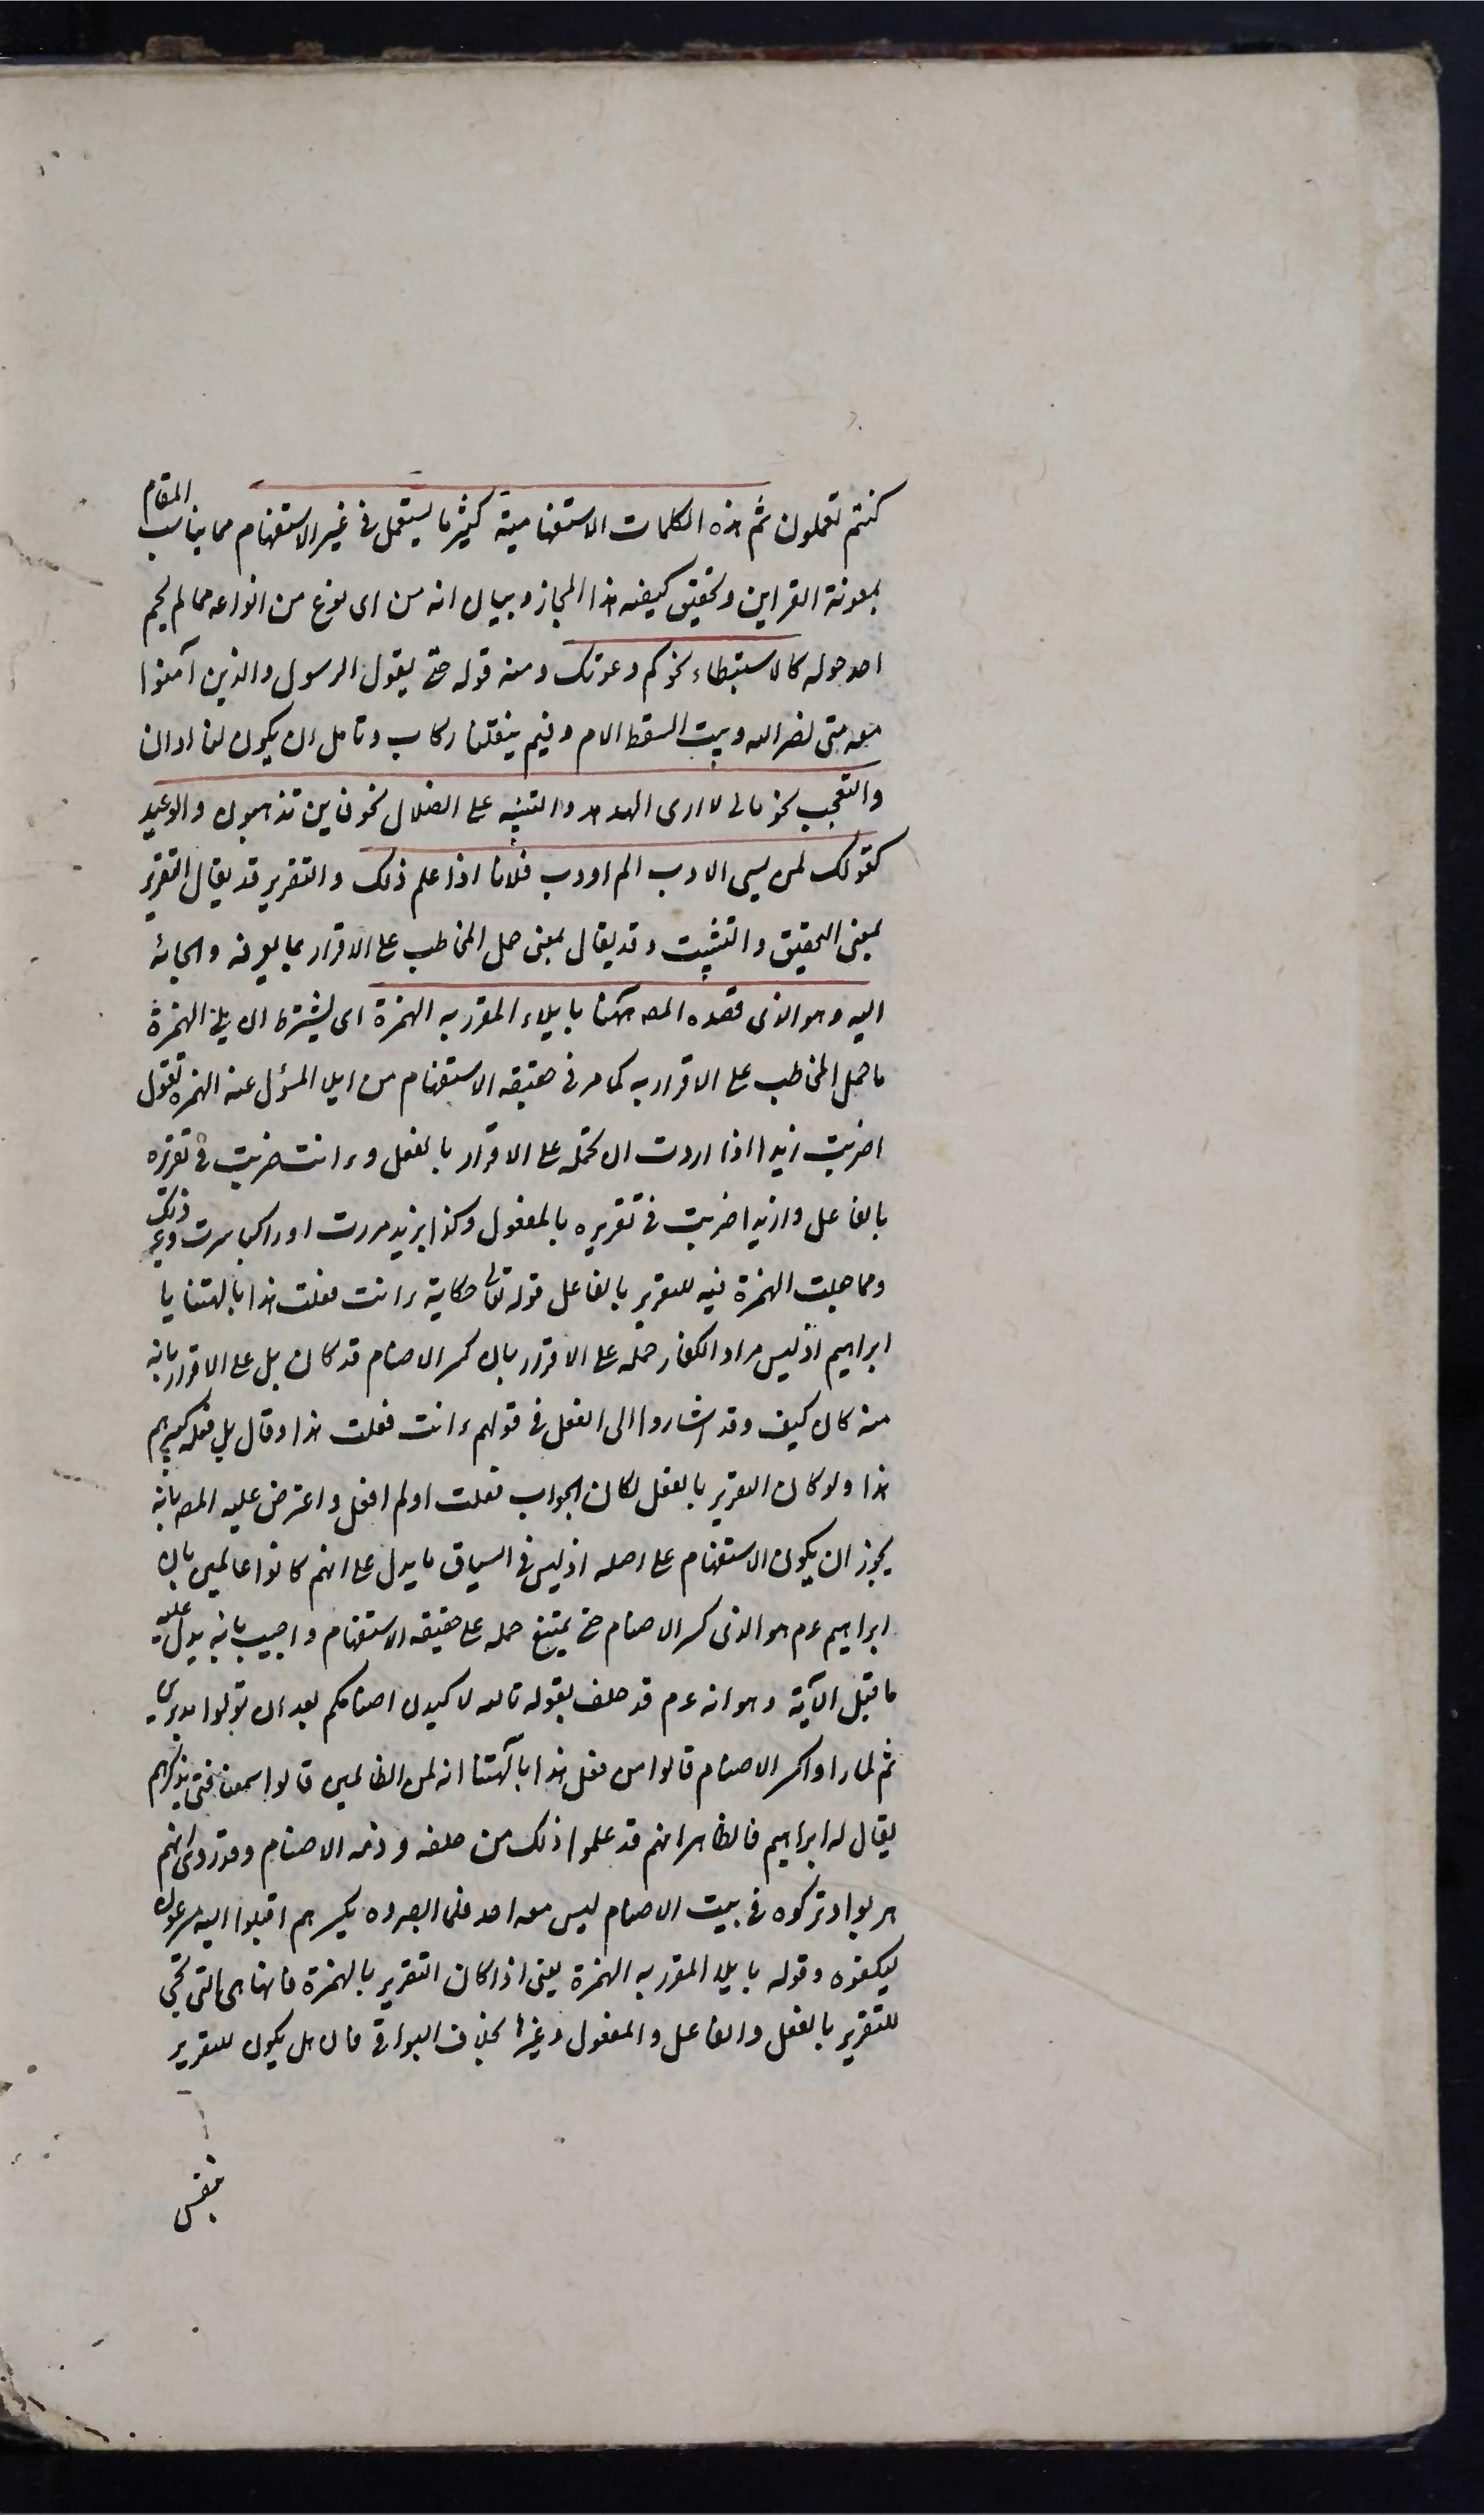 كنتم تعملون ثم هذه الكلمات الاستفهامية كثيرا ما يستعمل في غير الاستفهام مما يناسب المقام
بمعونة القراين وتحقيق كيفية هذا المجاز وبيان انه من اى نوع من انواعه مما لم يحم
احد حوله كالاستبطاء نحو كم دعوتك ومنه قوله حتى يقول الرسول والذين آمنوا
معه متى نصر الله وبيت السقط الام وفيم ينقلنا ركاب وتامل ان يكون لنا اوان
والتعجب نحو مالى لا ارى الهدهد والتنبيه على الضلال نحو فاين تذهبون والوعيد
كقولك لمن يسى الادب الم اودب فلانا اذا علم ذلك والتقرير قد يقال التقرير
بمعنى التحقيق والتثبيت وقد يقال بمعنى حمل المخاطب على الاقرار بما يعرفه والجائه
اليه وهو الذى قصده المصه ههنا بايلاء المقرر به الهمزة اى يشترط ان يلى الهمزة
ما حمل المخاطب على الاقرار به كما مر فى حقيقه الاستفهام من ايلا المسؤل عنه الهمزه تقول
اضربت زيدا اذا اردت ان تحمله على الاقرار بالفعل وءانت ضربت فى تقريره
بالفاعل وازيدا ضربت فى تقريره بالمفعول وكذا ابزيد مررت او راكبا سرت وغير ذلك
ومما جعلت الهمزة فيه للتقرير بالفاعل قوله تعالى حكاية ءانت فعلت هذا بالهتنا يا
ابراهيم اذ ليس مراد الكفار حمله على الاقرار بان كسر الاصنام قد كان بل على الاقرار بانه
منه كان كيف وقد اشاروا الى الفعل فى قولهم ءانت فعلت هذا وقال بل فعله كبيرهم
هذا ولو كان التقرير بالفعل لكان الجواب فعلت او لم افعل واعترض عليه المصه بانه
يجوز ان يكون الاستفهام على اصله اذ ليس فى السياق ما يدل على انهم كانوا عالمين بان
ابراهيم عم هو الذى كسر الاصنام حتى يمتنع حمله على حقيقه الاستفهام واجيب بانه يدل عليه
ما قبل الآية وهو انه عم قد حلف بقوله تالله لاكيدن اصنامكم بعد ان تولوا مدبرين
ثم لما راوا كسر الاصنام قالوا من فعل هذا بآلهتنا انه لمن الظالمين قالوا سمعنا فتى يذكرهم
يقال له ابراهيم فالظاهر انهم قد علموا ذلك من حلفه وذمه الاصنام وقد روى انهم
هربوا وتركوه فى بيت الاصنام ليس معه احد فلما ابصروه يكسرهم اقبلوا اليه مسرعون
ليكفوه وقوله بايلا المقرر به الهمزة يعنى اذا كان التقرير بالهمزة فانها هى التى تجى
للتقرير بالفعل والفاعل والمفعول وغيرها بخلاف البواقى فان هل يكون للتقرير
بنفس